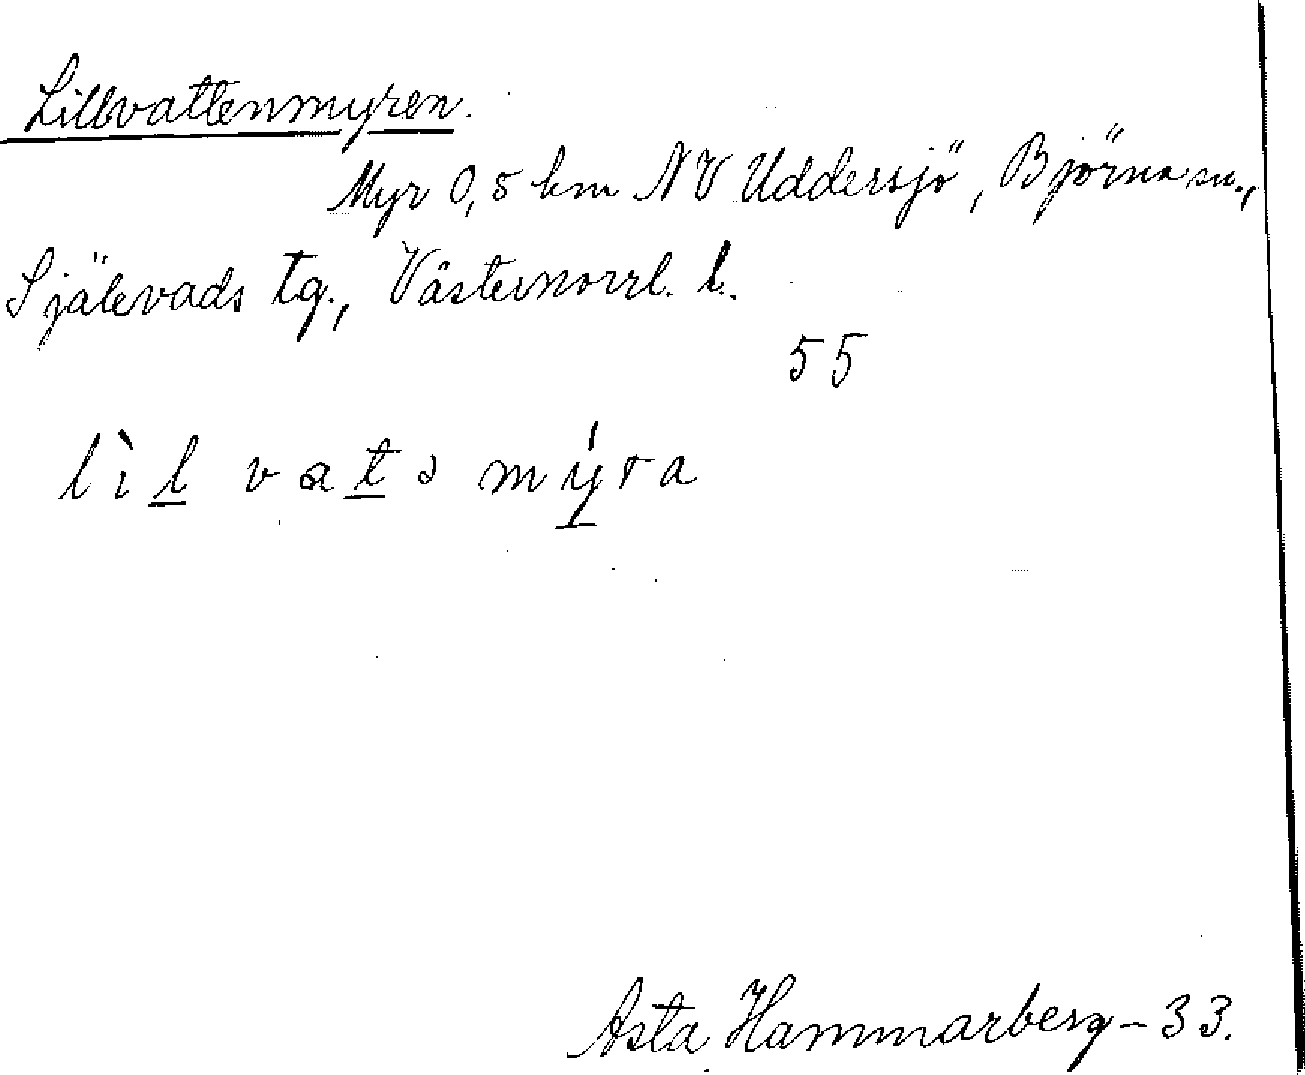 Lillvattenmyren.
Myr 0,5 km NV Uddersjö, Björna sn.,
Själevads tg., Västernorrl. l.
55
lìl vatə mýra
Asta Hammarberg - 33.